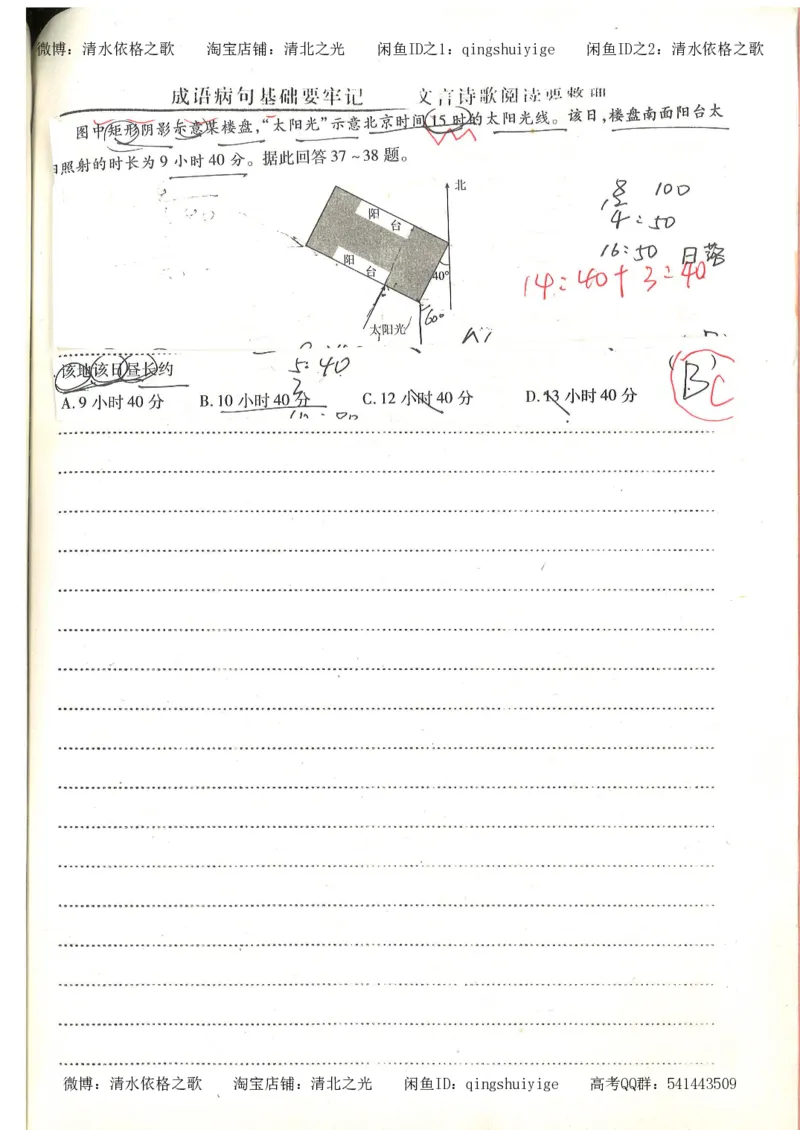 微博：清水依格之歌 淘宝店铺：清北之光 闲鱼ID之1：qingshuiyige 闲鱼ID之2：清水依格之歌
成语病句基础要牢记 文言诗歌阅读要整理
图中矩形阴影示意某楼盘，“太阳光”示意北京时间15时的太阳光线。该日，楼盘南面阳台太
照射的时长为9小时40分。据此回答37~38题。
北
8 100
12
阳台
4:50
16:50 日落
阳台
40°
14:40+3:40
60°
太阳光
该地该日昼长约
5:40
3
(B) C
A.9小时40分 B.10小时40分 C.12小时40分 D.13小时40分
微博：清水依格之歌 淘宝店铺：清北之光 闲鱼ID：qingshuiyige 高考QQ群：541443509